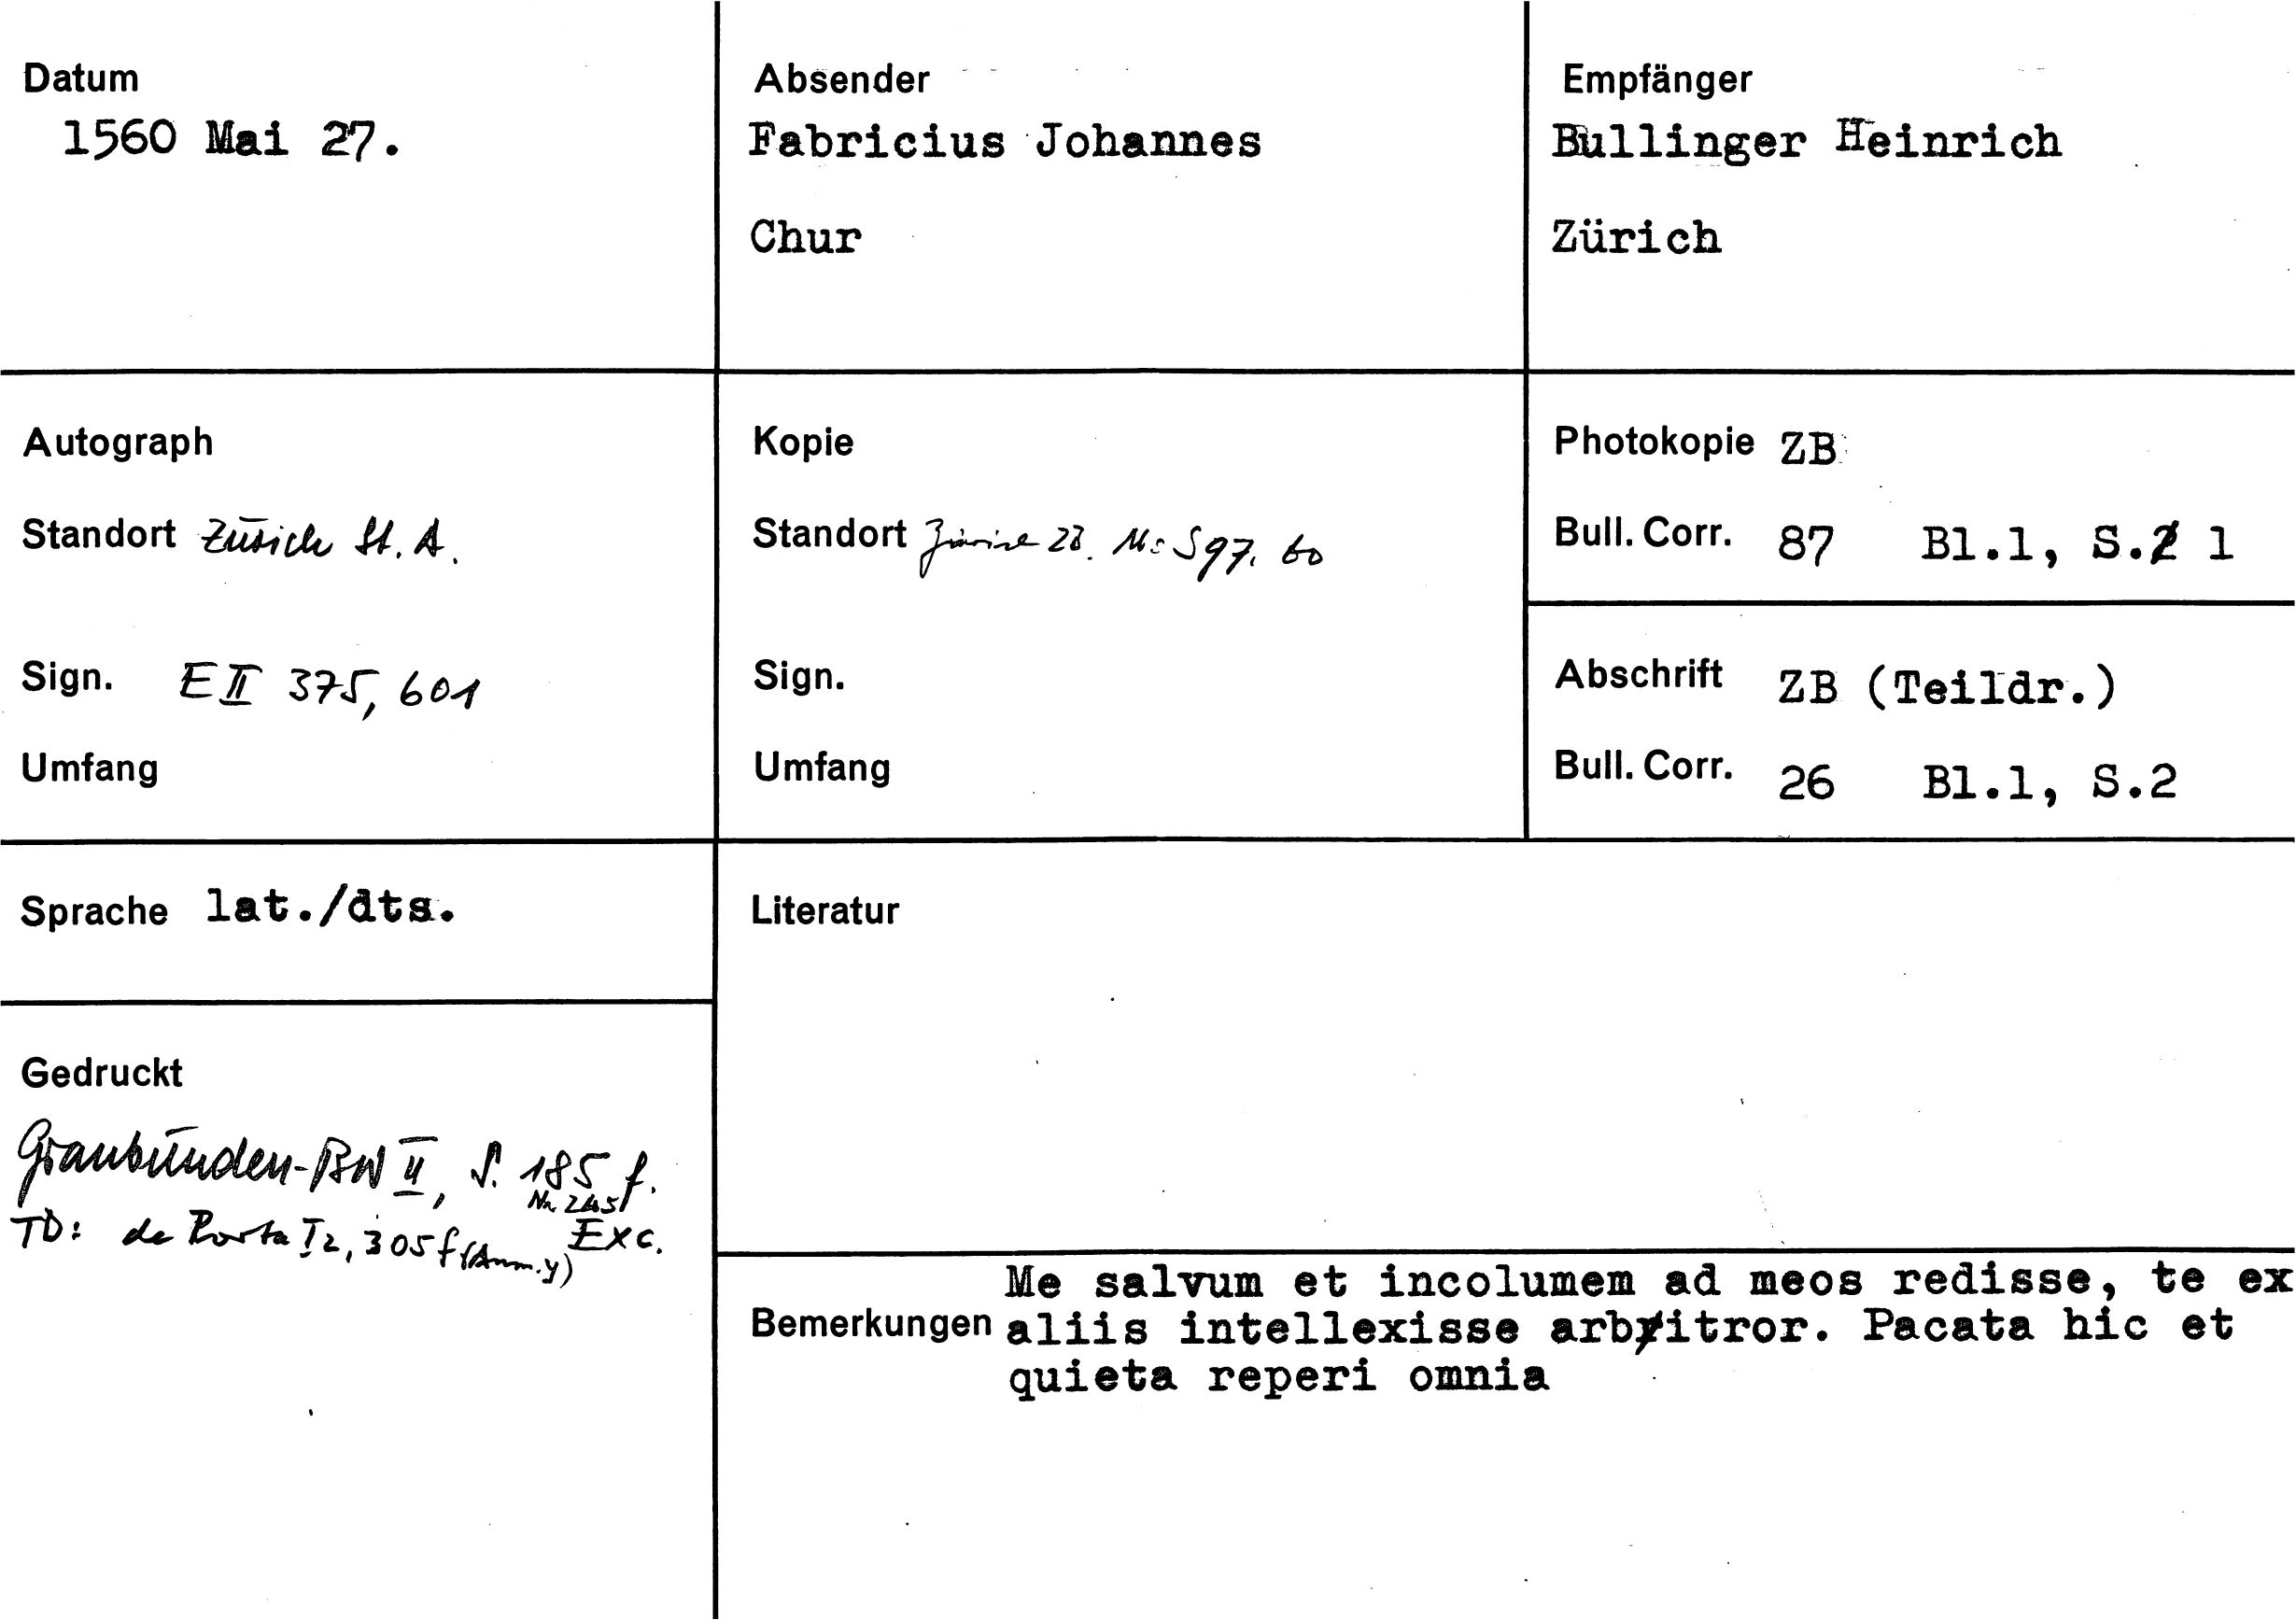 Datum
1560 Mai 27.
Absender
Fabricius Johannes
Chur
Empfänger
Bullinger Heinrich
Zürich
Autograph
Standort Zürich St. A.
Sign. E II 375, 601
Umfang
Kopie
Standort Zürich ZB. Ms S 97, 60
Sign.
Umfang
Photokopie ZB
Bull. Corr. 87 Bl.1, S.2 1
Abschrift ZB (Teildr.)
Bull. Corr. 26 Bl.1, S.2
Sprache lat./dts.
Literatur
Gedruckt
Graubünden-BW II, S. 185 f.
Nr. 245
TD: de Porta I2, 305 f (Anm. y) Exc.
Bemerkungen
Me salvum et incolumem ad meos redisse, te ex
aliis intellexisse arbritror. Pacata hic et
quieta reperi omnia